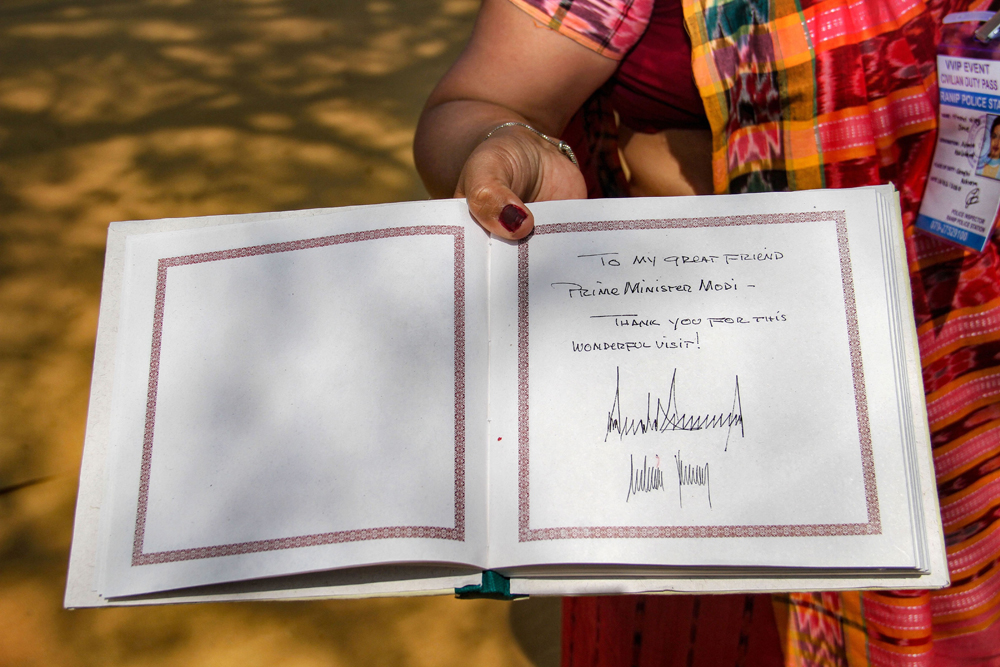 To my great friend
Prime Minister Modi -
Thank you for this
wonderful visit!
VVIP EVENT
CIVILIAN DUTY PASS
RANIP POLICE STA
POLICE INSPECTOR
RANIP POLICE STATION